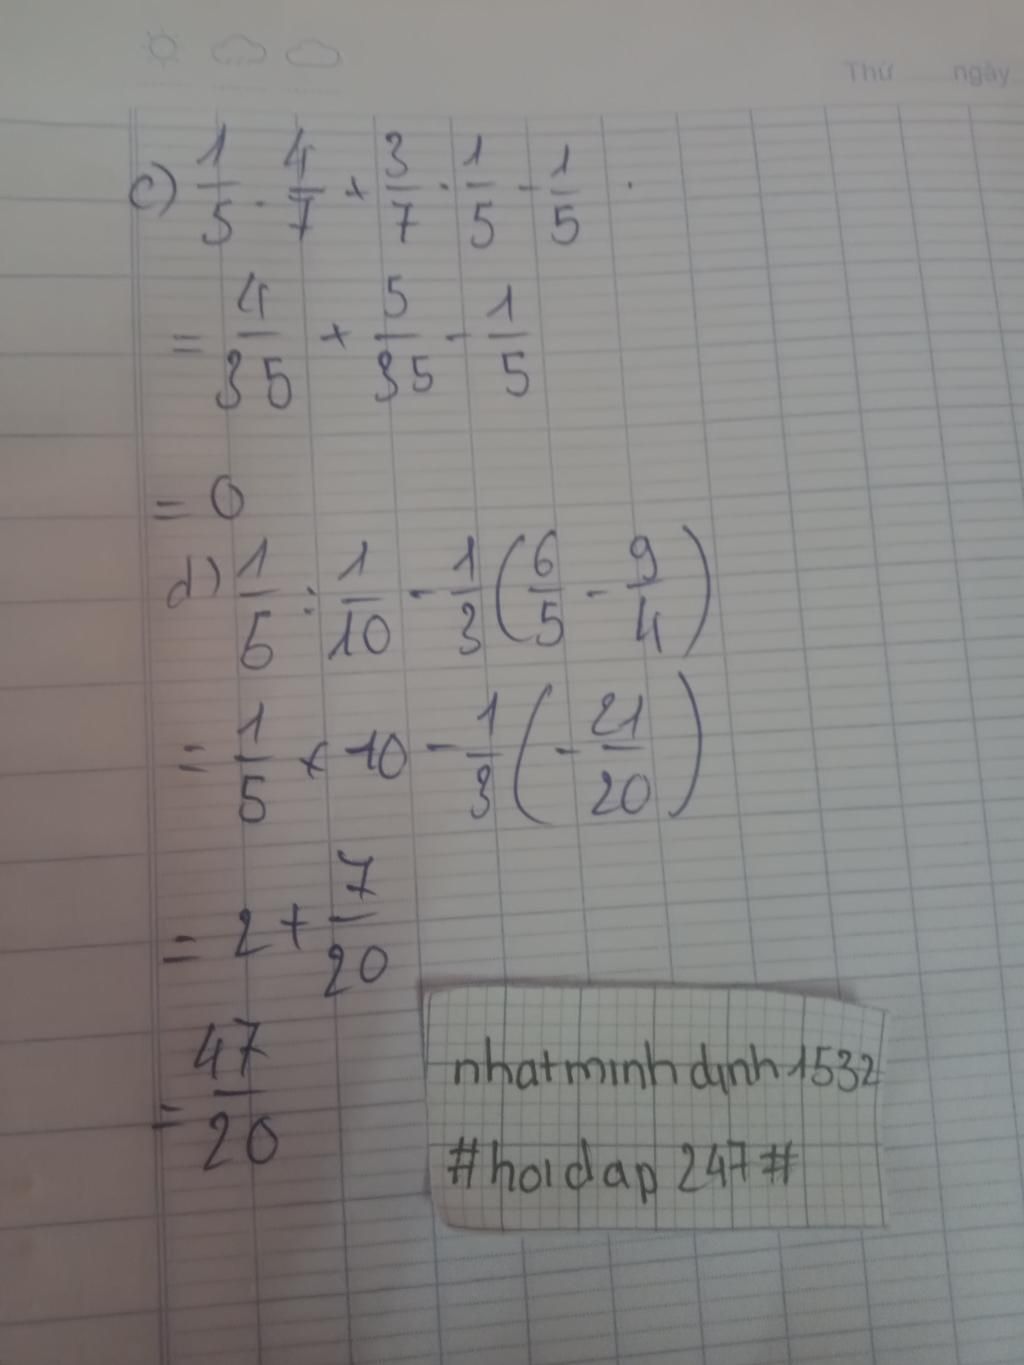 Thứ ngày
c) 1/5 . 4/7 + 3/7 . 1/5 - 1/5 .
= 4/35 + 5/35 - 1/5
= 0
d) 1/5 : 1/10 - 1/3 (6/5 - 9/4)
= 1/5 × 10 - 1/3 (- 21/20)
= 2 + 7/20
= 47/20
nhatminhdinh1532
#hoidap247#